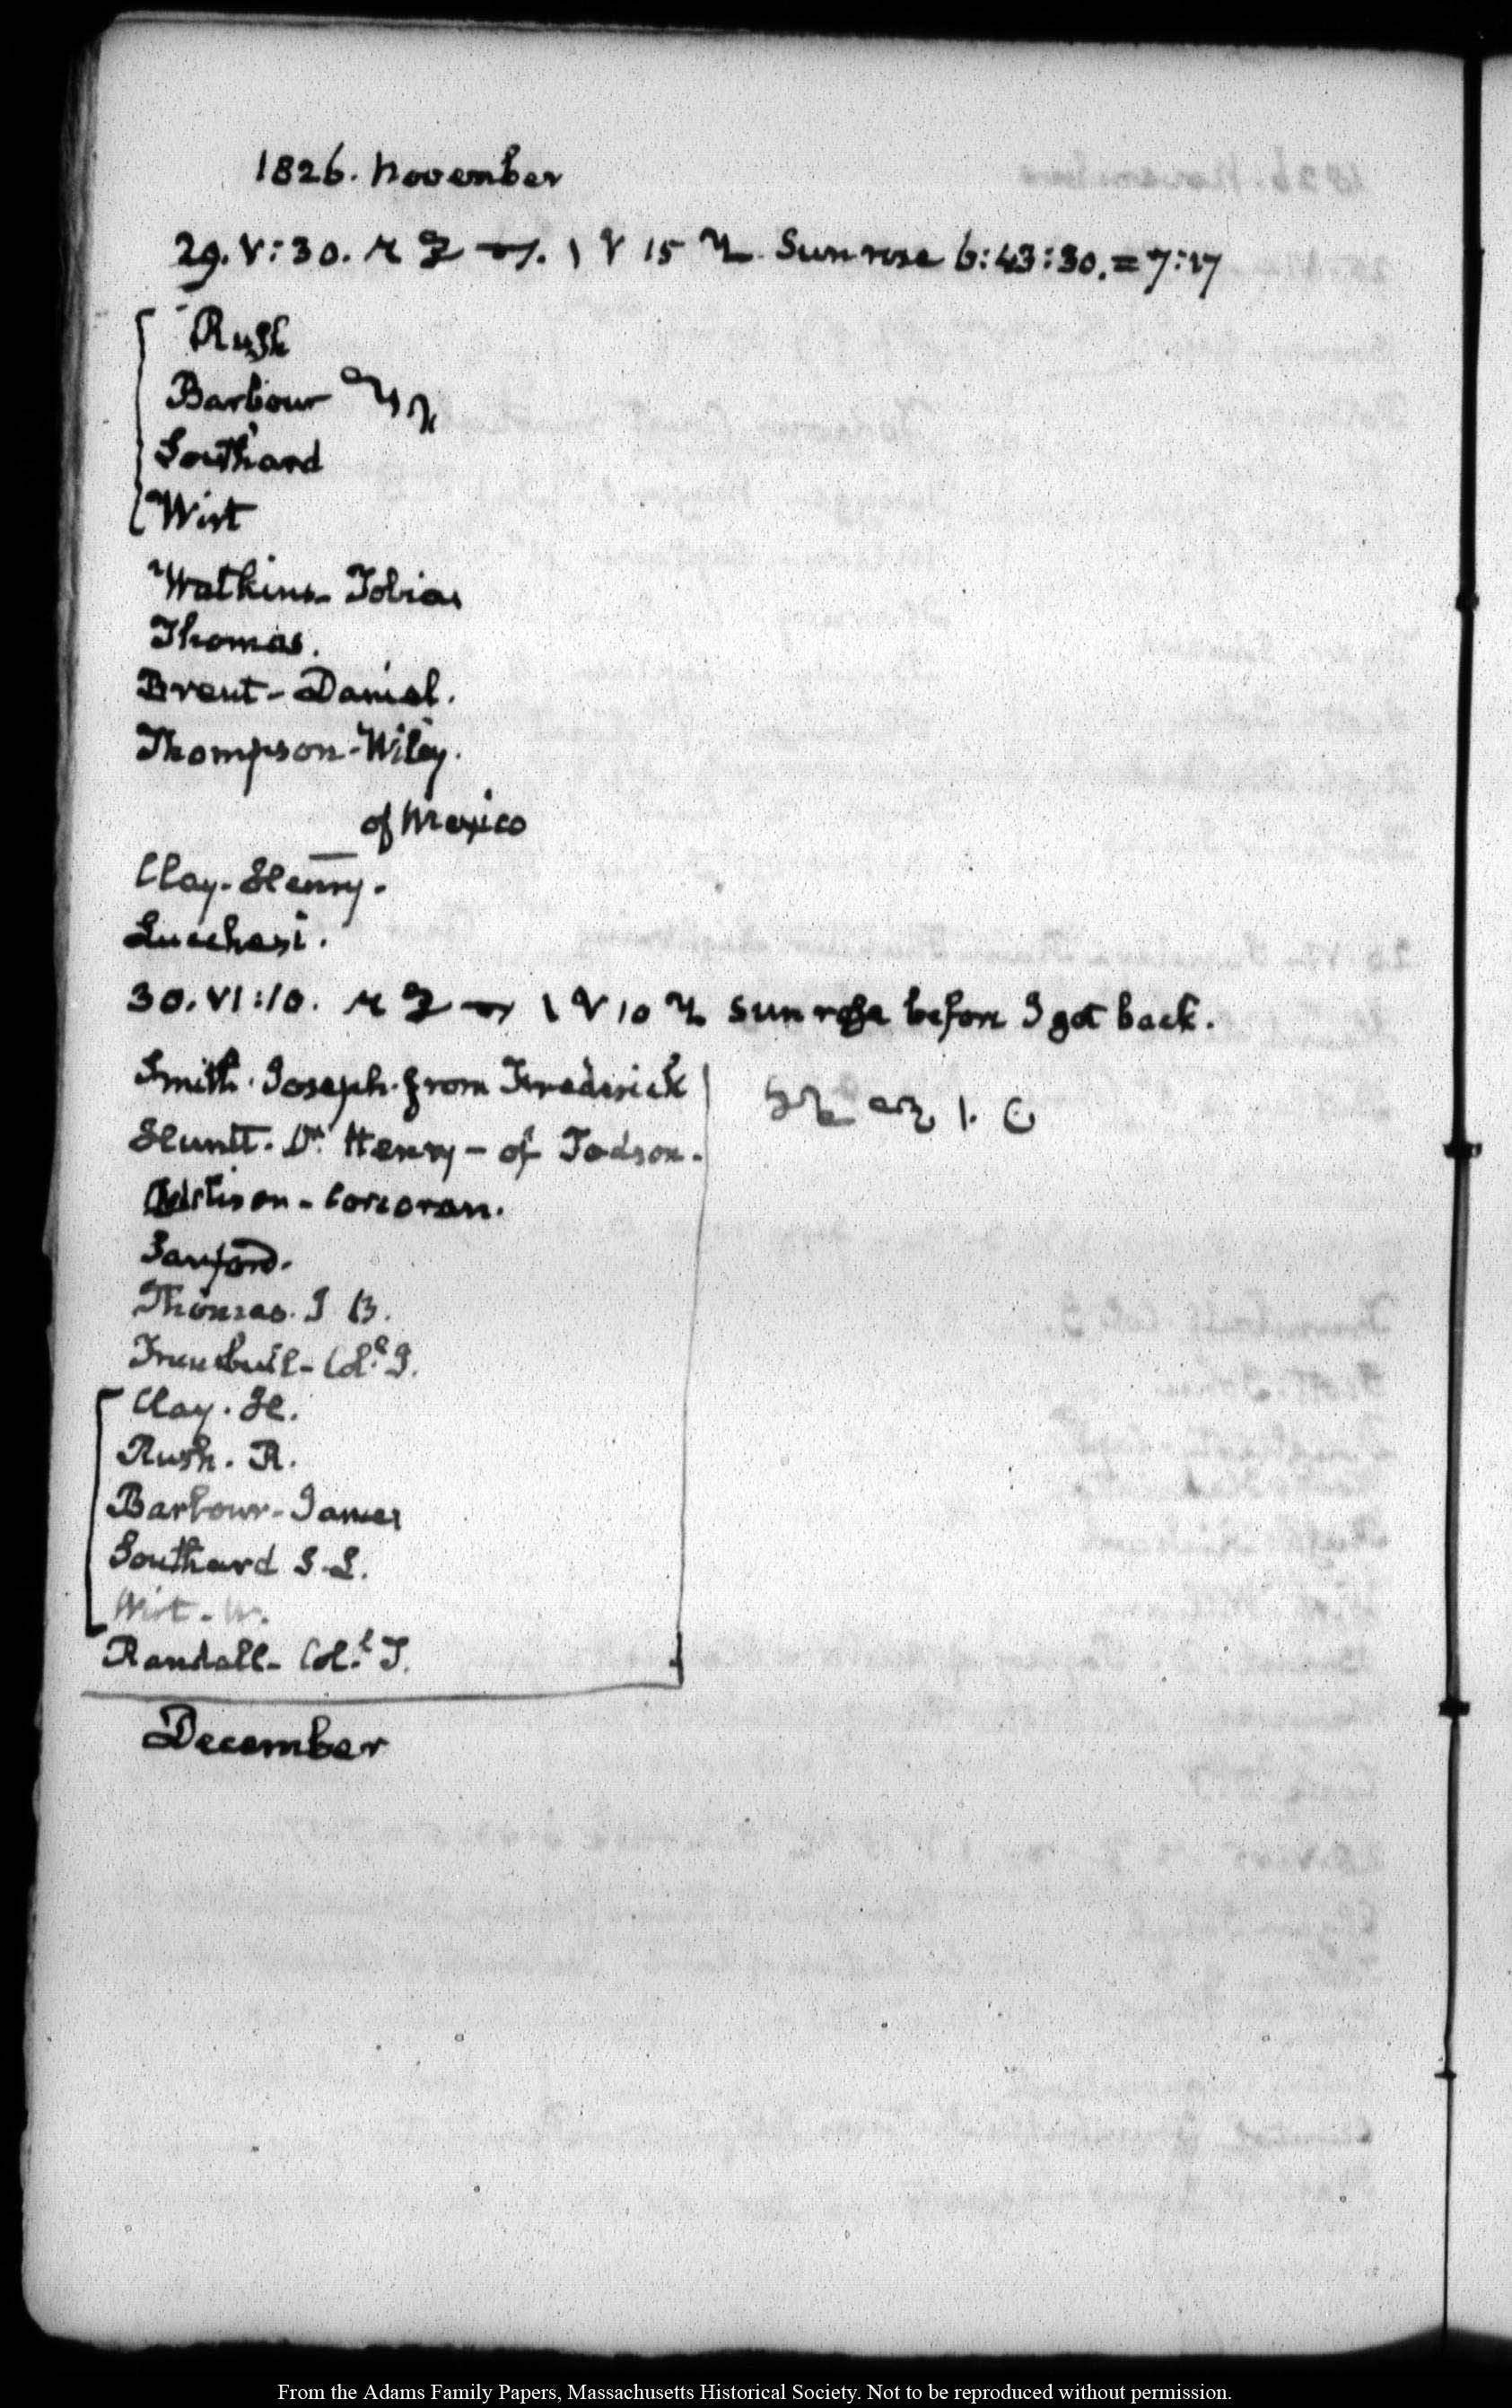 1826. November
29. V:30. 15 Sun rose 6:43:30.=7:17
Rush
Barbour
Southard
Wirt
Watkins- Tobias
Thomas.
Brent- Daniel.
Thompson-Wiley.
of Mexico
Clay-Henry.
Lucchesi.
30. VI:10. 10 Sun rose before I got back.
Smith. Joseph. from Frederick
Huntt. Dr. Henry- of Todson.
- Corcoran.
Sanford.
Thomas. J B.
Trumbull- Coll. J.
Clay. H.
Rush. R.
Barbour- James
Southard S. L.
Wirt- W.
Randall- Coll. T.
December
From the Adams Family Papers, Massachusetts Historical Society. Not to be reproduced without permission.